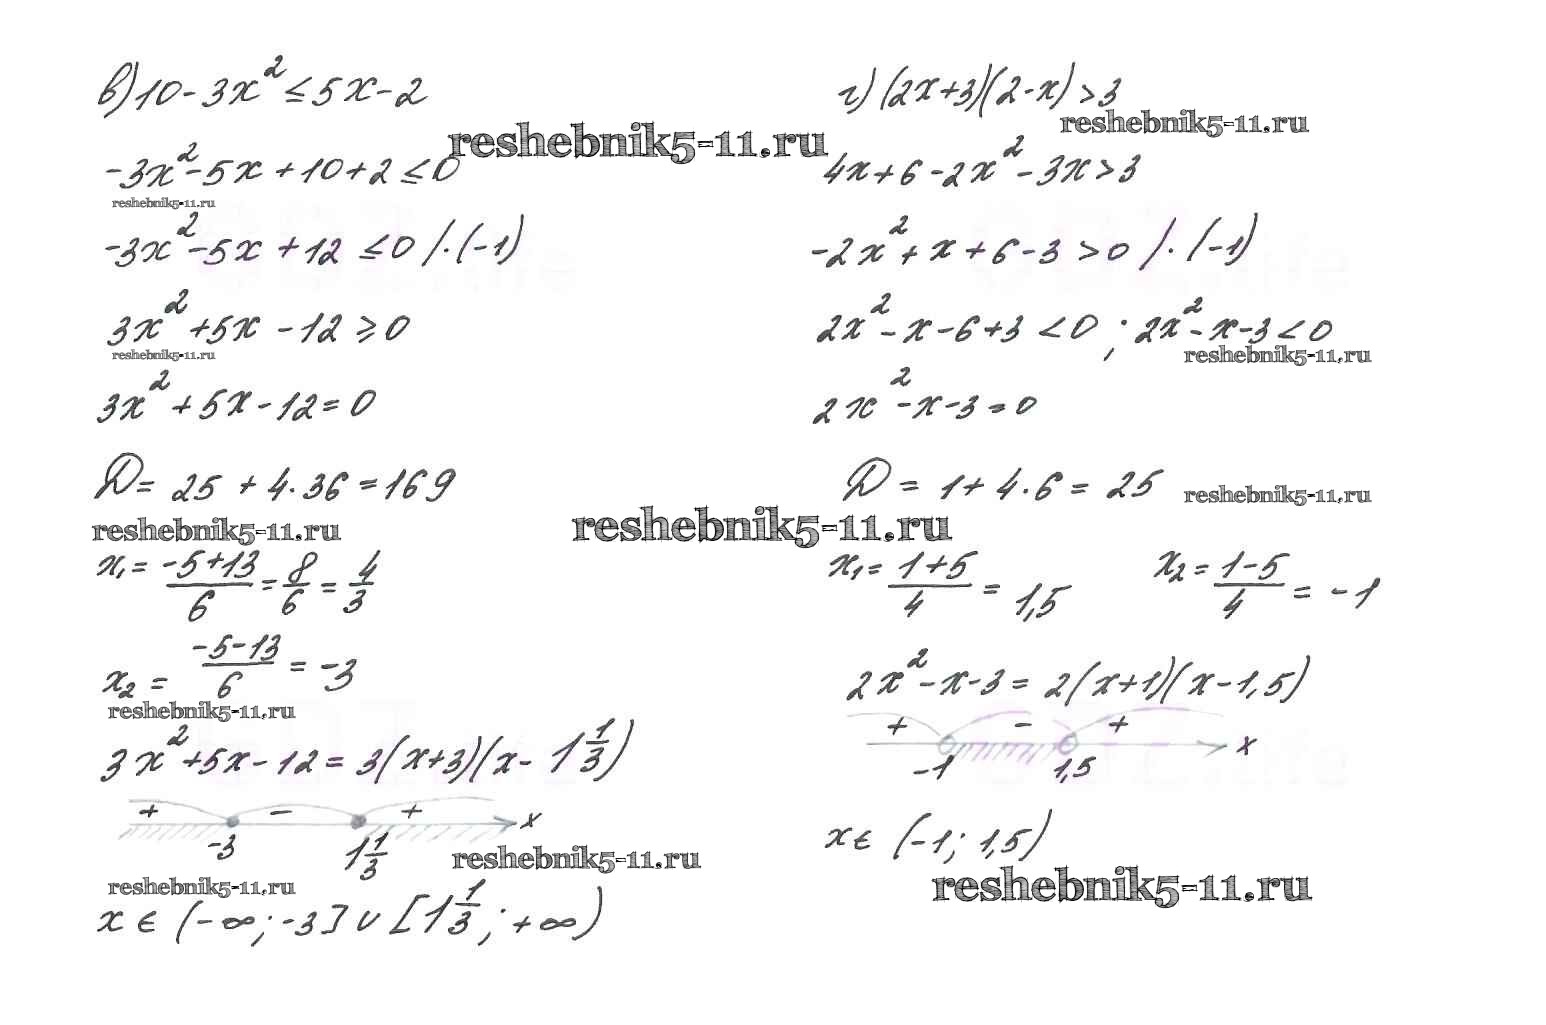 в) 10 - 3x² ≤ 5x - 2
reshebnik5-11.ru
-3x² - 5x + 10 + 2 ≤ 0
reshebnik5-11.ru
-3x² - 5x + 12 ≤ 0 /·(-1)
3x² + 5x - 12 ≥ 0
reshebnik5-11.ru
3x² + 5x - 12 = 0
D = 25 + 4·36 = 169
reshebnik5-11.ru
reshebnik5-11.ru
x₁ = (-5+13)/6 = 8/6 = 4/3
x₂ = (-5-13)/6 = -3
reshebnik5-11.ru
3x² + 5x - 12 = 3(x+3)(x - 1 1/3)
+ - + x
-3 1 1/3
reshebnik5-11.ru
reshebnik5-11.ru
x ∈ (-∞; -3] ∪ [1 1/3; +∞)
г) (2x+3)(2-x) > 3
reshebnik5-11.ru
4x + 6 - 2x² - 3x > 3
-2x² + x + 6 - 3 > 0 /·(-1)
2x² - x - 6 + 3 < 0 ; 2x² - x - 3 < 0
reshebnik5-11.ru
2x² - x - 3 = 0
D = 1 + 4·6 = 25
reshebnik5-11.ru
x₁ = (1+5)/4 = 1,5 x₂ = (1-5)/4 = -1
2x² - x - 3 = 2(x+1)(x-1,5)
+ - + x
-1 1,5
x ∈ (-1; 1,5)
reshebnik5-11.ru